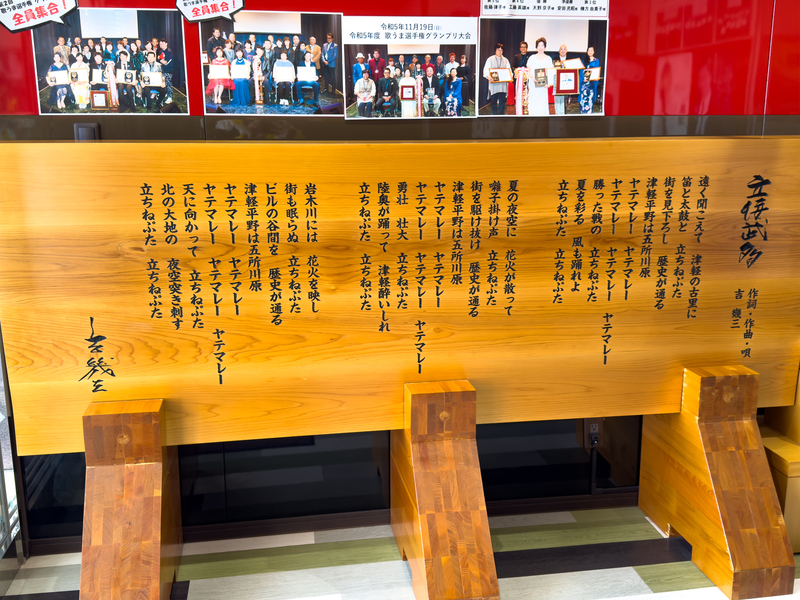 全員集合！
全員集合！
令和5年11月19日(日)
令和5年度 歌うま選手権グランプリ大会
立佞武多
作詞・作曲・唄
吉 幾三
遠く聞こえて 津軽の古里に
笛と太鼓と 立ちねぶた
街を見下ろし 歴史が通る
津軽平野は五所川原
ヤテマレー ヤテマレー
ヤテマレー ヤテマレー ヤテマレー
勝った戦の 立ちねぶた
夏を彩る 風も踊れよ
立ちねぶた 立ちねぶた
夏の夜空に 花火が散って
囃子掛け声 立ちねぶた
街を駆け抜け 歴史が通る
津軽平野は五所川原
ヤテマレー ヤテマレー
ヤテマレー ヤテマレー ヤテマレー
勇壮 壮大 立ちねぶた
陸奥が踊って 津軽酔いしれ
立ちねぶた 立ちねぶた
岩木川には 花火を映し
街も眠らぬ 立ちねぶた
ビルの谷間を 歴史が通る
津軽平野は五所川原
ヤテマレー ヤテマレー
ヤテマレー ヤテマレー ヤテマレー
天に向かって 立ちねぶた
北の大地の 夜空突き刺す
立ちねぶた 立ちねぶた
吉幾三